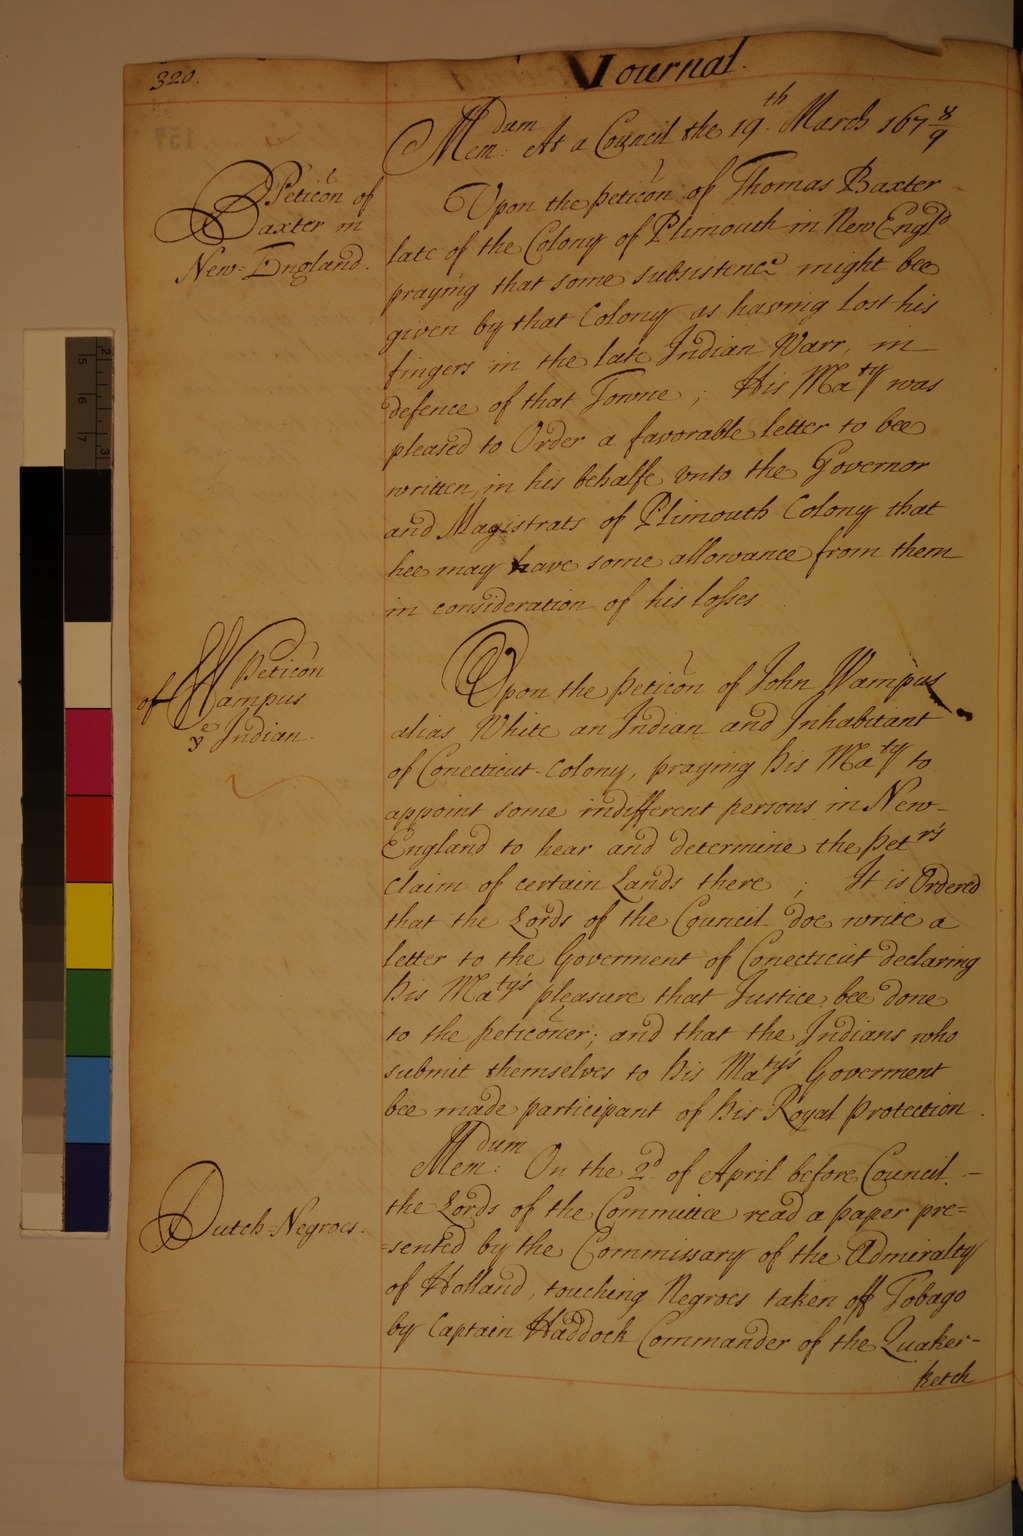 320.
Journal.
Mem:dum At a Council the 19th. March 167 8/9
Peticōn of
Baxter in
New-England.
Upon the peticōn of Thomas Baxter
late of the Colony of Plimouth in New Engld
praying that some subsistence might bee
given by that Colony as having lost his
fingers in the late Indian Warr, in
defence of that Towne; His Maty was
pleased to Order a favorable letter to bee
written, in his behalfe vnto the Governor
and Magistrats of Plimouth Colony that
hee may have some allowance from them
in consideration of his losses
Peticōn
of Wampus
ye Indian.
Upon the peticōn of John Wampus
alias White an Indian and Inhabitant
of Conecticut-Colony, praying his Maty to
appoint some indifferent persons in New-
England to hear and determine the petrs
claim of certain Lands there; It is Ordered
that the Lords of the Council doe write a
letter to the Goverment of Conecticut declaring
his Matys pleasure that Justice bee done
to the peticōner; and that the Indians who
submit themselves to his Matys Goverment
bee made participant of his Royal Protection.
Mem:dum On the 2d of April before Council -
Dutch-Negroes.
the Lords of the Committee read a paper pre=
=sented by the Commissary of the Admiralty
of Holland, touching Negroes taken off Tobago
by Captain Haddock Commander of the Quaker-
ketch